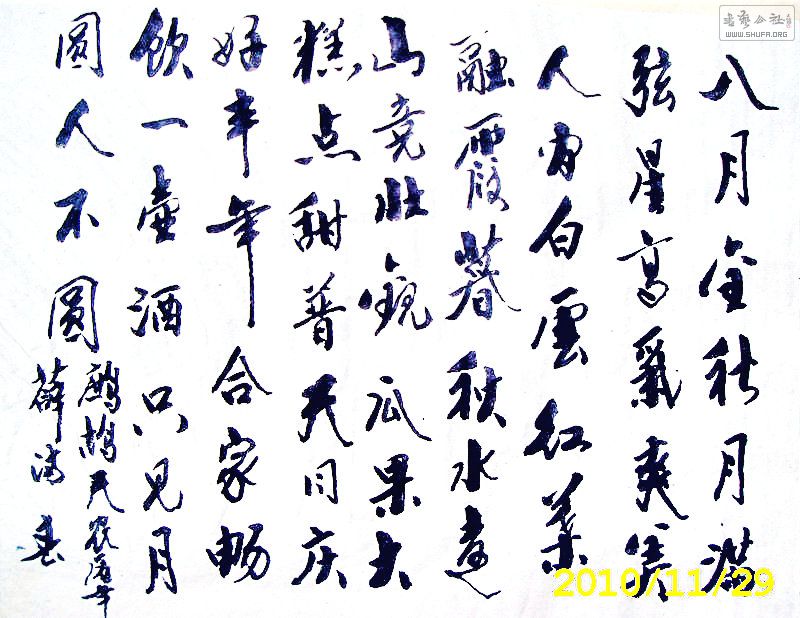 八月金秋月满
弦星高氣爽寒
人间白雲红葉
融霞暮秋水遠
山竞壮觀瓜果大
糕点甜普天同庆
好丰年合家畅
饮一壶酒只见月
圆人不圆
鹧鸪天
薛春
書藝公社
WWW.SHUFA.ORG
2010/11/29